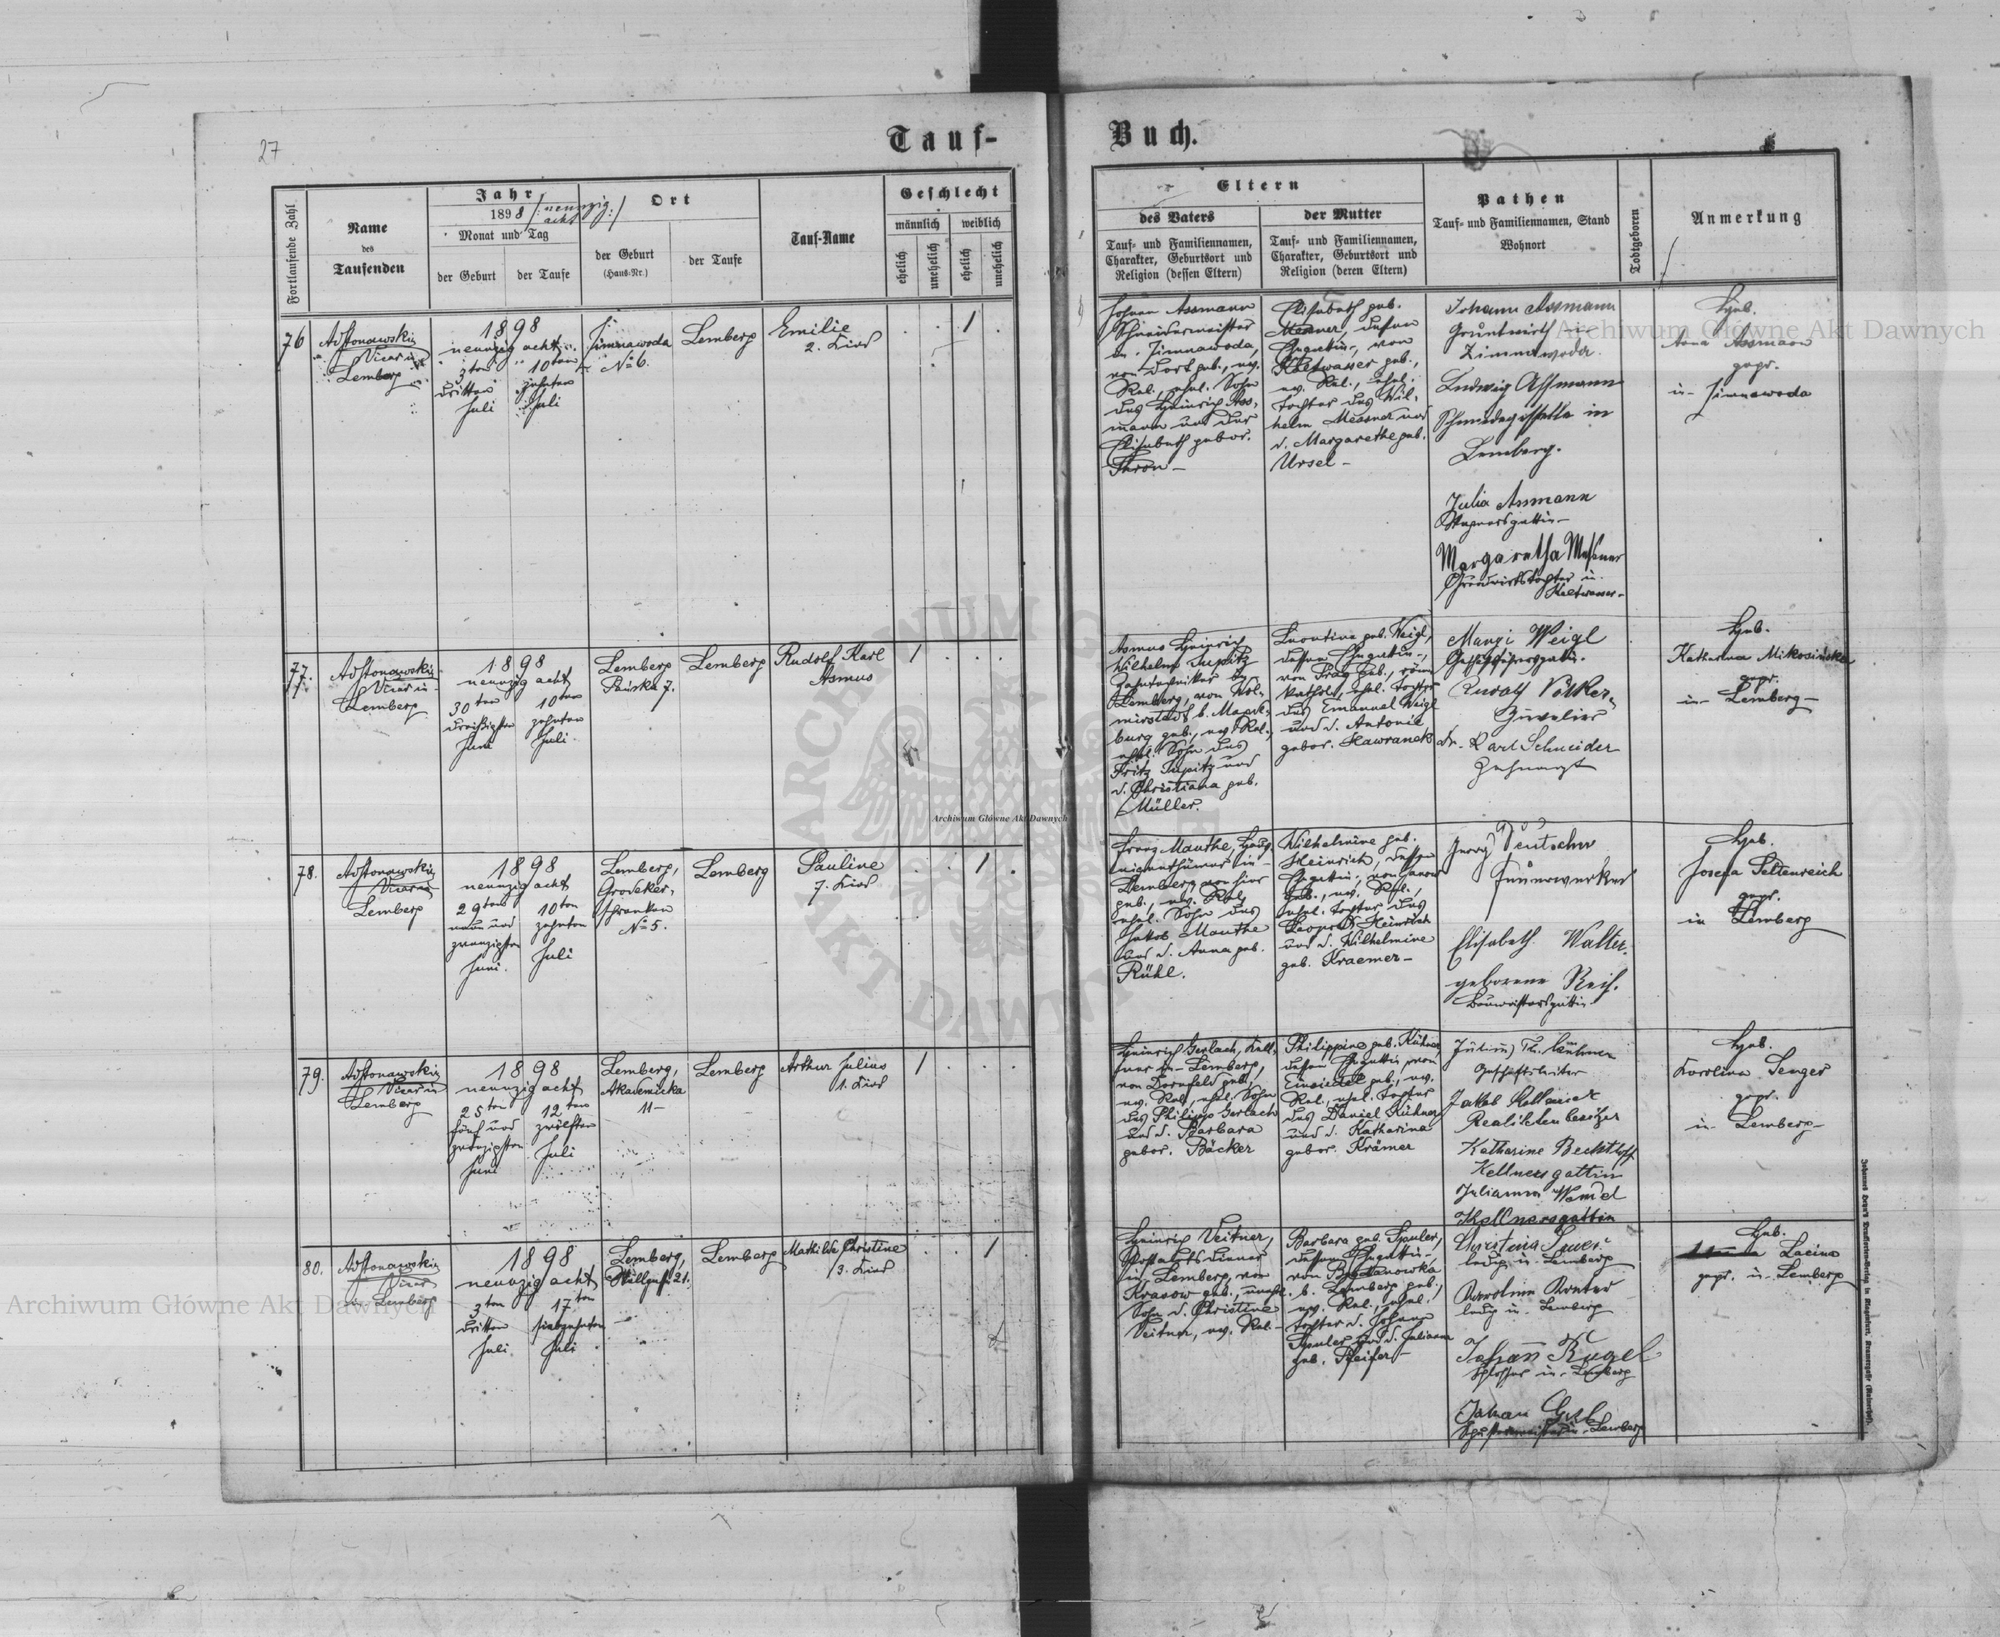 27
Tauf-
Buch.
Fortlaufende Zahl
Name
des
Taufenden
Jahr
1898 /: neunzig acht :/
Monat und Tag
der Geburt
der Taufe
Ort
der Geburt
(Haus-Nr.)
der Taufe
Tauf-Name
Geschlecht
männlich
weiblich
ehelich
unehelich
ehelich
unehelich
Eltern
des Vaters
Tauf- und Familiennamen,
Charakter, Geburtsort und
Religion (dessen Eltern)
der Mutter
Tauf- und Familiennamen,
Charakter, Geburtsort und
Religion (deren Eltern)
Pathen
Tauf- und Familiennamen, Stand
Wohnort
Todtgeboren
Anmerkung
76
Vicar in
Lemberg
1898
neunzig acht
3ten
10ten
dritten
zehnten
Juli
Juli
Zimnawoda
No 6.
Lemberg
Emilie
2. Kind
1
Johann Assmann
Schneidermeister
in Zimnawoda,
von dort geb., ev.
Rel., ehel. Sohn
des Heinrich Ass-
mann und der
Elisabeth gebor.
Thron -
Elisabeth geb.
Messner, dessen
Ehegattin, von
Kaltwasser geb.,
ev. Rel., ehel.
Tochter des Wil-
helm Messner und
d. Margarethe geb.
Ursel -
Johann Assmann
Grundwirth in
Zimnawoda.
Ludwig Assmann
in
Lemberg.
Julia Assmann
Margaretha Messner
Grundwirthstochter in
Kaltwasser -
Heb.
Anna Assmann
gepr.
in Zimnawoda
77.
Vicar in
Lemberg
1898
neunzig acht
30ten
10ten
dreißigsten
zehnten
Juni
Juli
Lemberg
Pańska 7.
Lemberg
Rudolf Karl
Asmus
1
Asmus Heinrich
Wilhelm Supitz
Zahntechniker in
Lemberg, von Wol-
mirstedt b. Magde-
burg geb., ev. Rel.,
ehel. Sohn des
Fritz Supitz und
d. Christiana geb.
Müller.
Leontine geb. Weigl,
dessen Ehegattin,
von Prag geb., röm.
kathol., ehel. Tochter
des Emanuel Weigl
und d. Antonie
gebor. Hawranek
Weigl
Rudolf Völker
Juvelier
Dr. Karl Schneider
Zahnarzt
Heb.
Katharina Mikosińska
gepr.
in Lemberg -
78.
Vicar in
Lemberg
1898
neunzig acht
29ten
10ten
neun und
zehnten
zwanzigsten
Juli
Juni.
Lemberg,
Grodeker-
schranken
No 5.
Lemberg
Pauline
7. Kind
1
Franz Mauthe, Haus-
eigenthümer in
Lemberg, von hier
geb., ev. Rel.,
ehel. Sohn des
Jakob Mauthe
und d. Anna geb.
Rühl.
Wilhelmine geb.
Heinrich, dessen
Ehegattin, von
geb., ev. Rel.,
ehel. Tochter des
Leopold Heinrich
und d. Wilhelmine
geb. Kraemer -
Georg Deutscher
Feuerwerker
Elisabeth Walter
geborene Reis.
Baumeistersgattin
Heb.
Josefa Peltenreich
gepr.
in Lemberg
79.
Vicar in
Lemberg
1898
neunzig acht
25ten
12ten
fünf und
zwölften
zwanzigsten
Juli
Juni
Lemberg,
Akademicka
11 -
Lemberg
Arthur Julius
1. Kind
1
Heinrich Gerlach, Kell-
ner in Lemberg,
von Dornfeld geb.,
ev. Rel., ehel. Sohn
des Philipp Gerlach
und d. Barbara
gebor. Bäcker
Philippine geb. Kühner
dessen Ehegattin, von
Einsiedel geb., ev.
Rel., ehel. Tochter
des Daniel Kühner
und d. Katharina
gebor. Krämer
Geschäftsleiter
Jakob
Realitätenbesitzer
Katharine Bechtloff
Kellnersgattin
Julianna Wendel
Kellnersgattin
Heb.
Karolina Senger
gepr.
in Lemberg -
80.
Vicar
in Lemberg
1898
neunzig acht
3ten
17ten
dritten
siebzehnten
Juli
Juli
Lemberg,
21.
Lemberg
Mathilde Christine
3. Kind
1
Heinrich Veitner,
Postamtsdiener
in Lemberg, von
Krasow geb., unehl.
Sohn d. Christine
Veitner, ev. Rel. -
Barbara geb. Spuler,
dessen Ehegattin,
von Bogdanowka
b. Lemberg geb.,
ev. Rel., ehel.
Tochter d. Johann
Spuler und d. Julianna
geb. Pfeifer -
Christina
ledig in Lemberg
Karolina
ledig in Lemberg
Johann Kugel
Schlosser in Lemberg
Johann
in Lemberg
Heb.
Lacina
gepr. in Lemberg
Archiwum Główne Akt Dawnych
Archiwum Główne Akt Dawnych
Archiwum Główne Akt Dawnych
ARCHIWUM GŁÓWNE AKT DAWNYCH